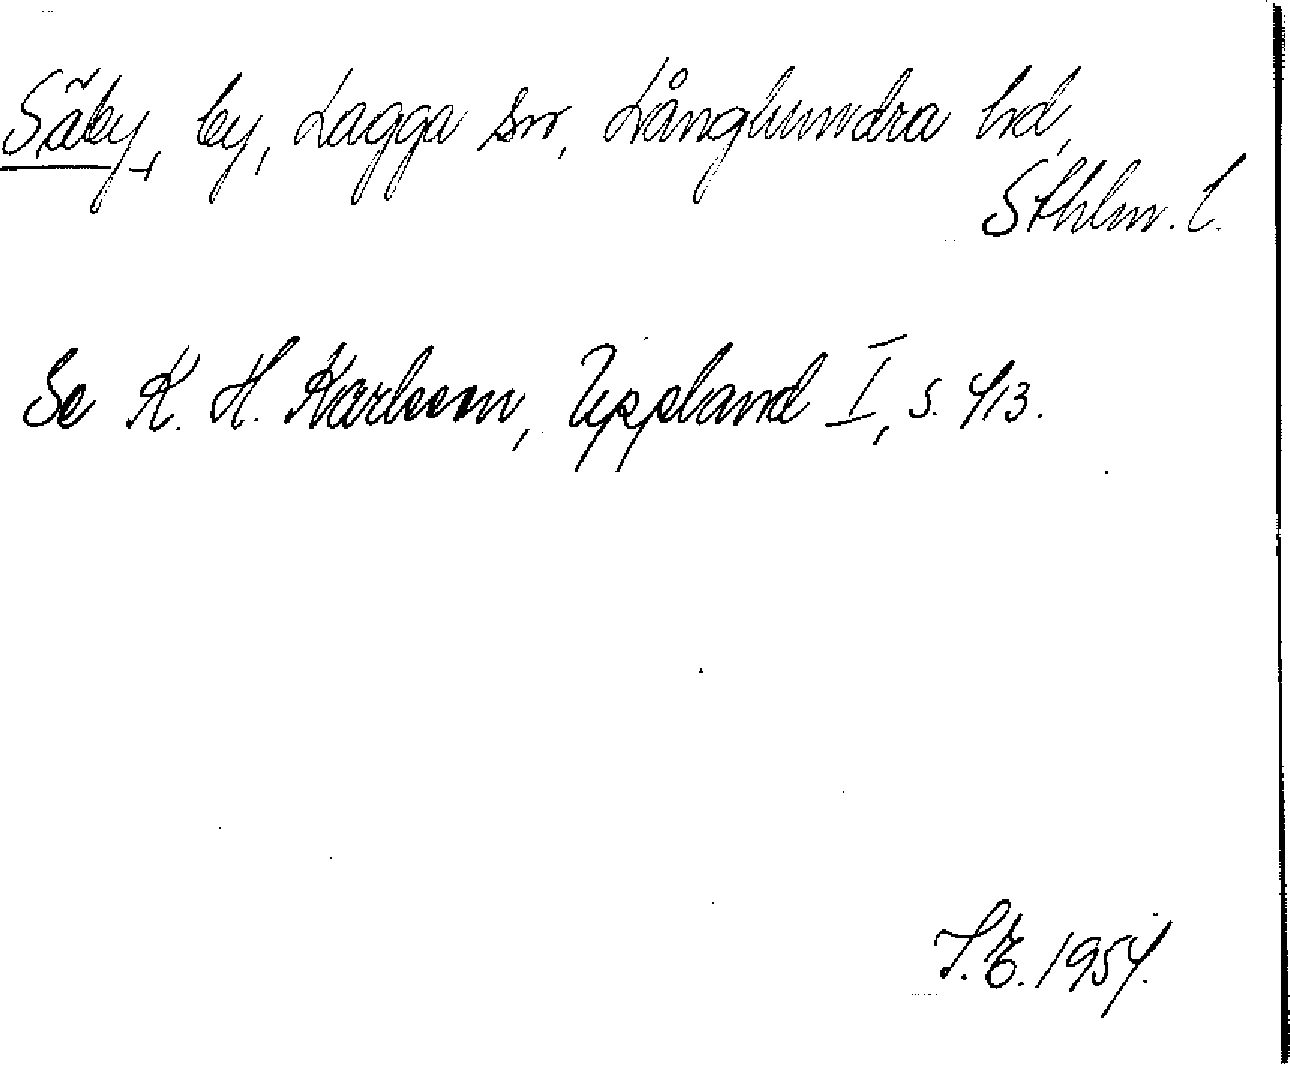 Säby, by, Lagga sn, Långhundra hd,
Sthlm. l.
Se K. H. Karlsson, Uppland I, s. 413.
S.E. 1954.